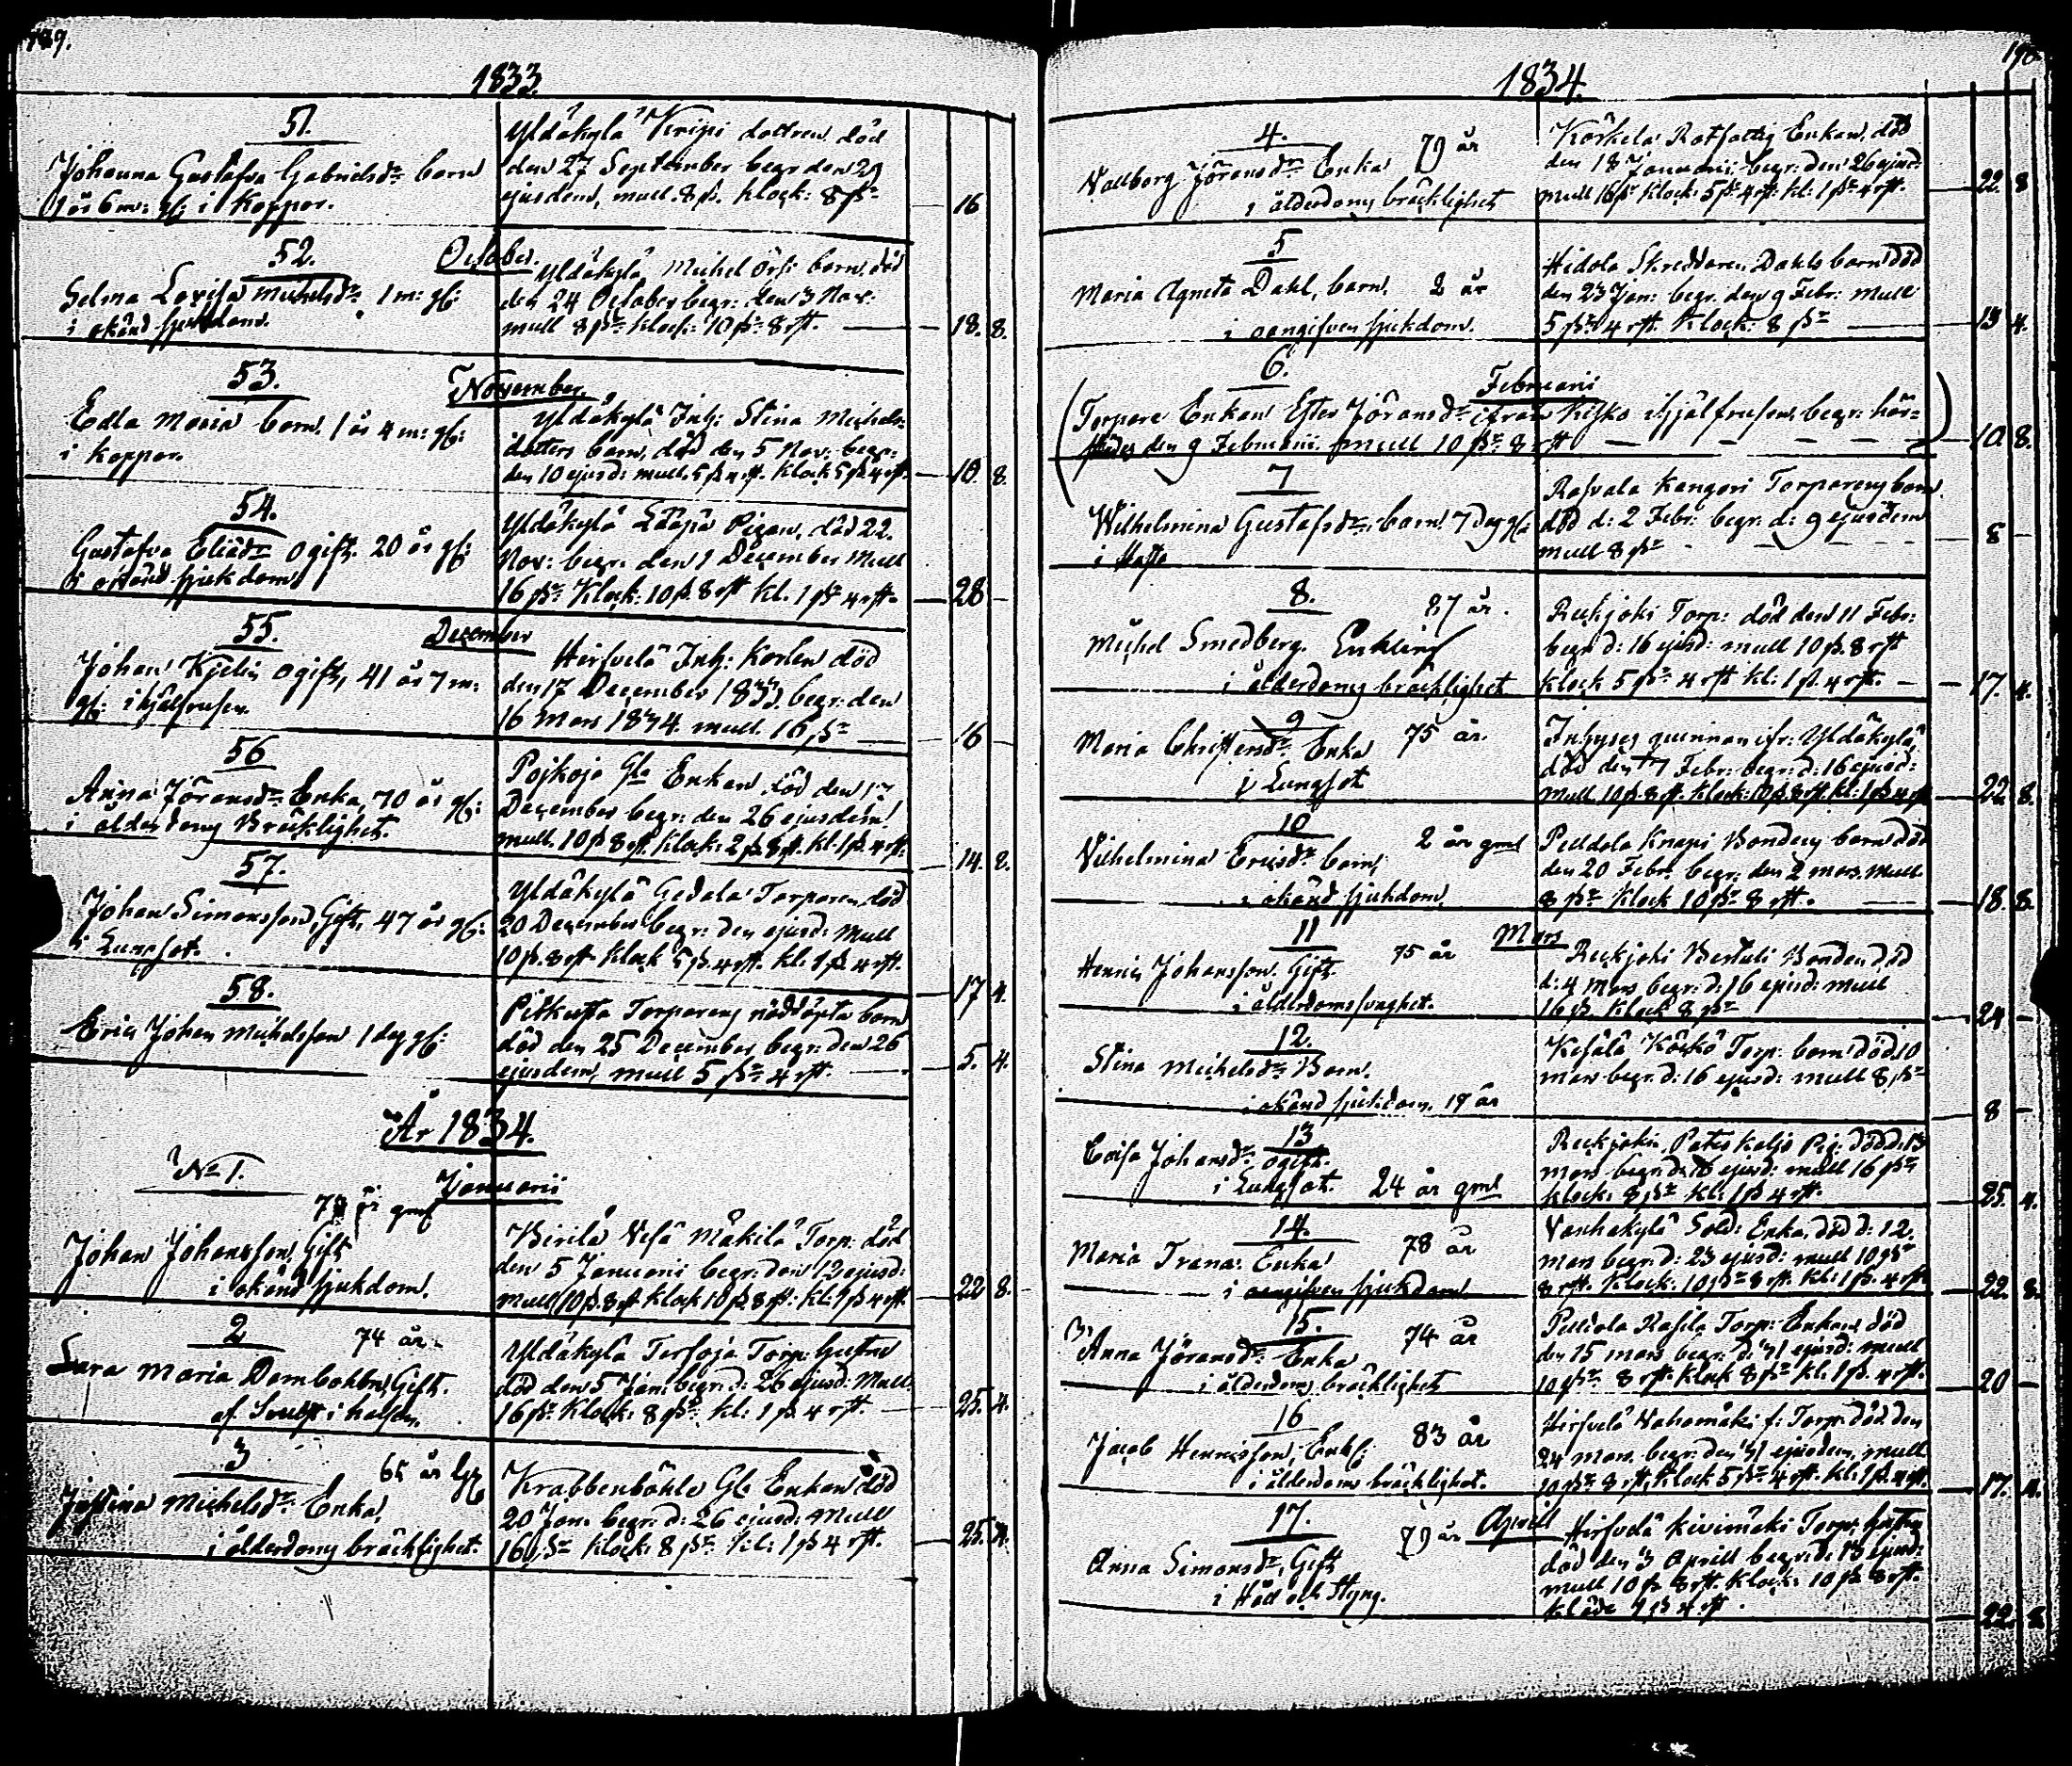 189.
1833.
51.
Johanna Gustafva Gabrielsdr barn
1 år 6 m: gl: i Koppor.
Yldäkylä Kripi dottren död
den 27 September begr den 29
ejusdem, mull. 8 β. Klock: 8 β
16
52.
October.
Selma Lovisa Michelsdr 1 m: gl:
i okänd sjukdom.
Yldäkylä Michel Örfs barn, död
den 24 October begr: den 3 Nov:
mull 8 β Klock: 10 β 8 rst.
18. 8.
53.
November.
Edla Maria barn. 1 år 4 m: gl:
i koppor.
Yldäkylä Inh: Stina Michels-
dotters barn, död den 5 Nov: begr:
den 10 ejusd: mull. 5 β 4 rst. Klock 5 β 4 rst.
10. 8.
54.
Gustafva Eliædr Ogift. 20 år gl:
i okänd sjukdom
Yldäkylä Pigan, död 22.
Nov: begr: den 1 December Mull
16 β Klock: 10 β. 8 rst kl. 1 β 4 rst.
28 -
55.
December
Johan Kjelin Ogift, 41 år 7 m:
gl: ihjälfrusen.
Hirsvelä Inh: Karlen död
den 17 December 1833 begr: den
16 Mars 1834. mull. 16 β
16 -
56
Anna Jöransdr Enka, 70 år gl:
i ålderdoms Bräcklighet.
Pojkoja Gla Enkan död den 17
December begr: den 26 ejusdem
mull. 10 β 8 rst. Klock: 2 β 8 rst. kl. 1 β. 4 rst.
14. 8.
57.
Johan Simonsson, Gift, 47 år gl:
i Lungsot.
Yldäkylä Gedala Torparen död
20 December begr: den ejusd: Mull
10 β. 8 rst Klock 5 β. 4 rst. kl: 1 β 4 rst.
17 4.
58.
Eric Johan Michelsson 1 dag gl:
Pitkusta Torparens nöddöpta barn
död den 25 December begr: den 26
ejusdem, mull 5 β 4 rst.
5. 4.
År 1834.
No 1.
Januarii
år gml
Johan Johansson, Gift
i okänd sjukdom.
Virilä Vesä Mäkilä Torp: död
den 5 Januarii begr: den 12 ejusd:
mull 10 β. 8 rst Klock 10 β 8 rst: kl: 1 β 4 rst.
22 8.
2
74 år
Sara Maria Gift.
af i halsen.
Yldäkylä Torp: hustru
död den 5 Jan: begr: d: 26 ejusd: Mull.
16 β. Klock: 8 β kl: 1 β. 4 rst.
25. 4.
3
65 år
Justina Michelsdr Enka,
i ålderdoms bräcklighet.
Krabbenböhle Gl: Enkan död
20 Jan. begr: d: 26 ejusd: Mull
16 β Klock: 8 β kl: 1 β 4 rst.
25. 4.
190.
1834.
4.
79 år
Vallborg Jöransdr Enka
i ålderdoms bräcklighet
Körkelä Rotfattig Enkan, död
den 18 Januarii begr: den 26 ejusd:
mull 16 β Klock: 5 β 4 rst. kl: 1 β 4 rst.
22. 8
5
Maria Agneta Dahl, barn. 2 år
i oangifven sjukdom.
Hidola Skreddaren Dahls barn död
den 23 Jan: begr. den 9 Febr: Mull
5 β 4 rst. Klock: 8 β
13 4.
6.
Februarii
Torpare Enkan Ester Jöransdr ifrån Kisko ihjälfrusen, begr: här-
städes den 9 Februarii mull 10 β 8 rst
10. 8.
7
Wilhelmina Gustafsdr: barn 7 dag gl:
i Hosta
Rasvala Kangari Torparens barn.
död d: 2 Febr: begr: d: 9 ejusdem
mull 8 β
8 -
8.
87 år.
Michel Smedberg. Enkling
i ålderdoms bräcklighet
Reckjoki Torp: död den 11 Febr:
begr d: 16 ejusd: mull 10 β. 8 rst
Klock 5 β 4 rst kl: 1 β. 4 rst.
17. 4.
9
Maria Christersdr Enka 75 år.
i Lungsot
Inhyses quinnan ifr: Yldäkylä,
död den 7 Febr: begr: d: 16 ejusd:
mull 10 β 8 rst. Klock: 10 β 8 rst. kl: 1 β 4 rst
22 8.
10
2 år gml
Vilhelmina Ericsdr barn,
i okänd sjukdom
Pelldola Knapi Bondens barn död
den 20 Febr. begr: den 2 mars. mull
8 β Klock 10 β 8 rst.
18. 8.
11
75 år
Mars
Henric Johansson. Gift.
i ålderdomssvaghet.
Reckjoki Bertuli Bonden död
d: 4 Mars begr: d: 16 ejusd: mull
16 β Klock 8 β
24 -
12.
Stina Michelsdr Barn.
i okänd sjukdom. år
Kesälä Körkö Torp: barn död 10
mars begr. d: 16 ejusd: mull 8 β
8 -
13
Caisa Johansdr: ogift.
i Lungsot. 24 år gml
Reckjoki Pig: död d: 13
mars begr: d: 16 ejusd: mull 16 β
Klock: 8 β kl: 1 β 4 rst.
25. 4.
14.
78 år
Maria Trana: Enka
i oangifven sjukdom
Vanhakylä Sold: Enka, död d: 12.
mars begr: d: 23 ejusd: mull 10 β
8 rst. Klock: 10 β 8 rst. kl: 1 β. 4 rst
22. 8.
15.
74 år
Anna Jöransdr Enka
i ålderdoms bräcklighet
Pelldola Rasila Torp: Enkan död
den 15 mars begr: d: 31 ejusd: mull
10 β 8 rst. Klock 8 β kl: 1 β. 4 rst.
20 -
16
Jacob Henricsson, Enkl: 83 år
i ålderdoms bräcklighet.
Hirsvelä Vahamäki f: Torp. död den
24 mars. begr: den 31 ejusdem, mull
10 β 8 rst, Klock 5 β 4 rst. kl: 1 β. 4 rst.
17. 4.
17.
79 år
Aprill
Anna Simonsdr, Gift
i Håll och Styng.
Hirsvelä Kivimäki Torp: hustru
död den 3 Aprill begr: d: 13 ejusd:
mull 10 β 8 rst. Klock: 10 β 8 rst.
kläde 1 β 4 rst.
22 8